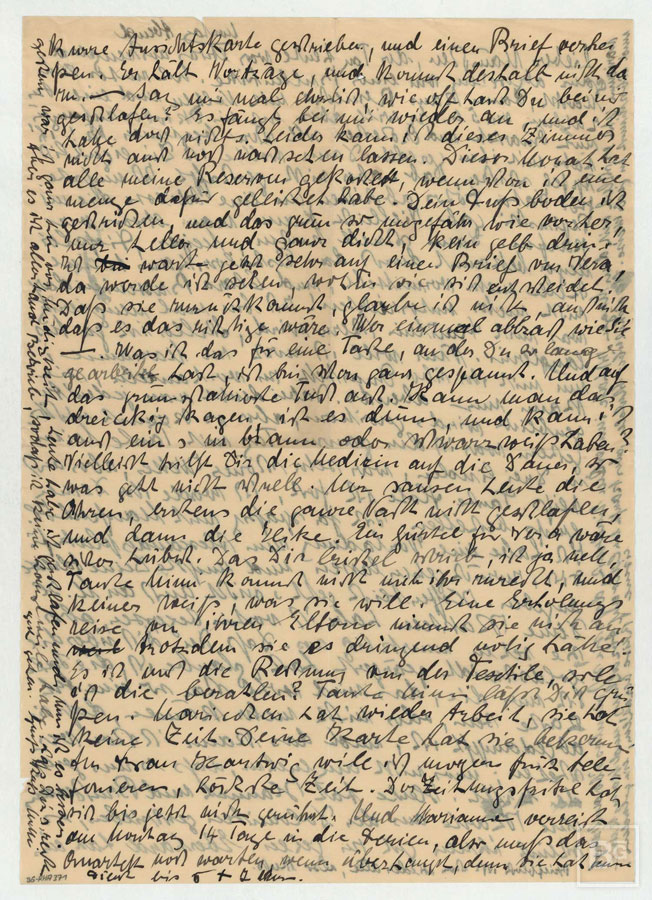 kurze Ansichtskarte geschrieben, und einen Brief verhei
ßen. Er hält Vorträge, und kommt deshalb nicht da
zu. — Sag mir mal ehrlich, wie oft hast Du bei mir
geschlafen? Es fängt bei mir wieder an, und ich
habe doch nichts. Leider kann ich dieses Zimmer
nicht auch noch nachsehen lassen. Dieser Monat hat
alle meine Reserven gekostet, wenn schon ich eine
menge dafür geleistet habe. Dein Fussboden ist
gestrichen, und das grün so ungefähr wie vorher,
nur heller und ganz dicht, kein gelb drin.
Ich warte jetzt sehr auf einen Brief von Vera,
da werde ich sehen, wohin sie sich entscheidet.
Daß sie zurückkommt, glaube ich nicht, auch nicht
daß es das richtige wäre. Wer einmal abhaut wie sie
—. Was ist das für eine Tasche, an der Du so lange
gearbeitet hast, ich bin schon ganz gespannt. Und auf
das grün Tuch auch. Kann man das
dreieckig tragen, ist es dünn, und kann ich
auch eins in braun oder schwarzweiß haben?
Vielleicht hilft Dir die Medicin auf die Dauer, so
was geht nicht schnell. Mir sausen heute die
Ohren, erstens die ganze Nacht nicht geschlafen,
und dann die Hitze. Ein Gürtel für wäre
schon hübsch. Das Dir Christel schreibt, ist ja nett,
Tante Mimi kommt nicht mit ihr zurecht, und
keiner weiß, was sie will. Eine Erholungs
reise zu ihren Eltern nimmt sie nicht an
trotzdem sie es dringend nötig hätte.
Es ist noch die Rechnung von der Textile, soll
ich die bezahlen? Tante Mimi läßt Dich grü
ßen. Mariechen hat wieder Arbeit, sie hat
keine Zeit. Deine Karte hat sie bekommen
Frau Hartwig will ich morgen früh tele
fonieren, höchste Zeit. Der Zeitungsfritze hat
sich bis jetzt nicht gerührt. Und Marianne verreist
am Montag 14 Tage in die Ferien, also muß das
Quartett noch warten, wenn überhaupt, denn sie hat
Dienst bis
gestern war ich ganz heute habe ich geschlafen und nun ist es
es ist allerhand Betrieb, sodaß ich kaum
gut gehen. Gruß Kuss
DG-